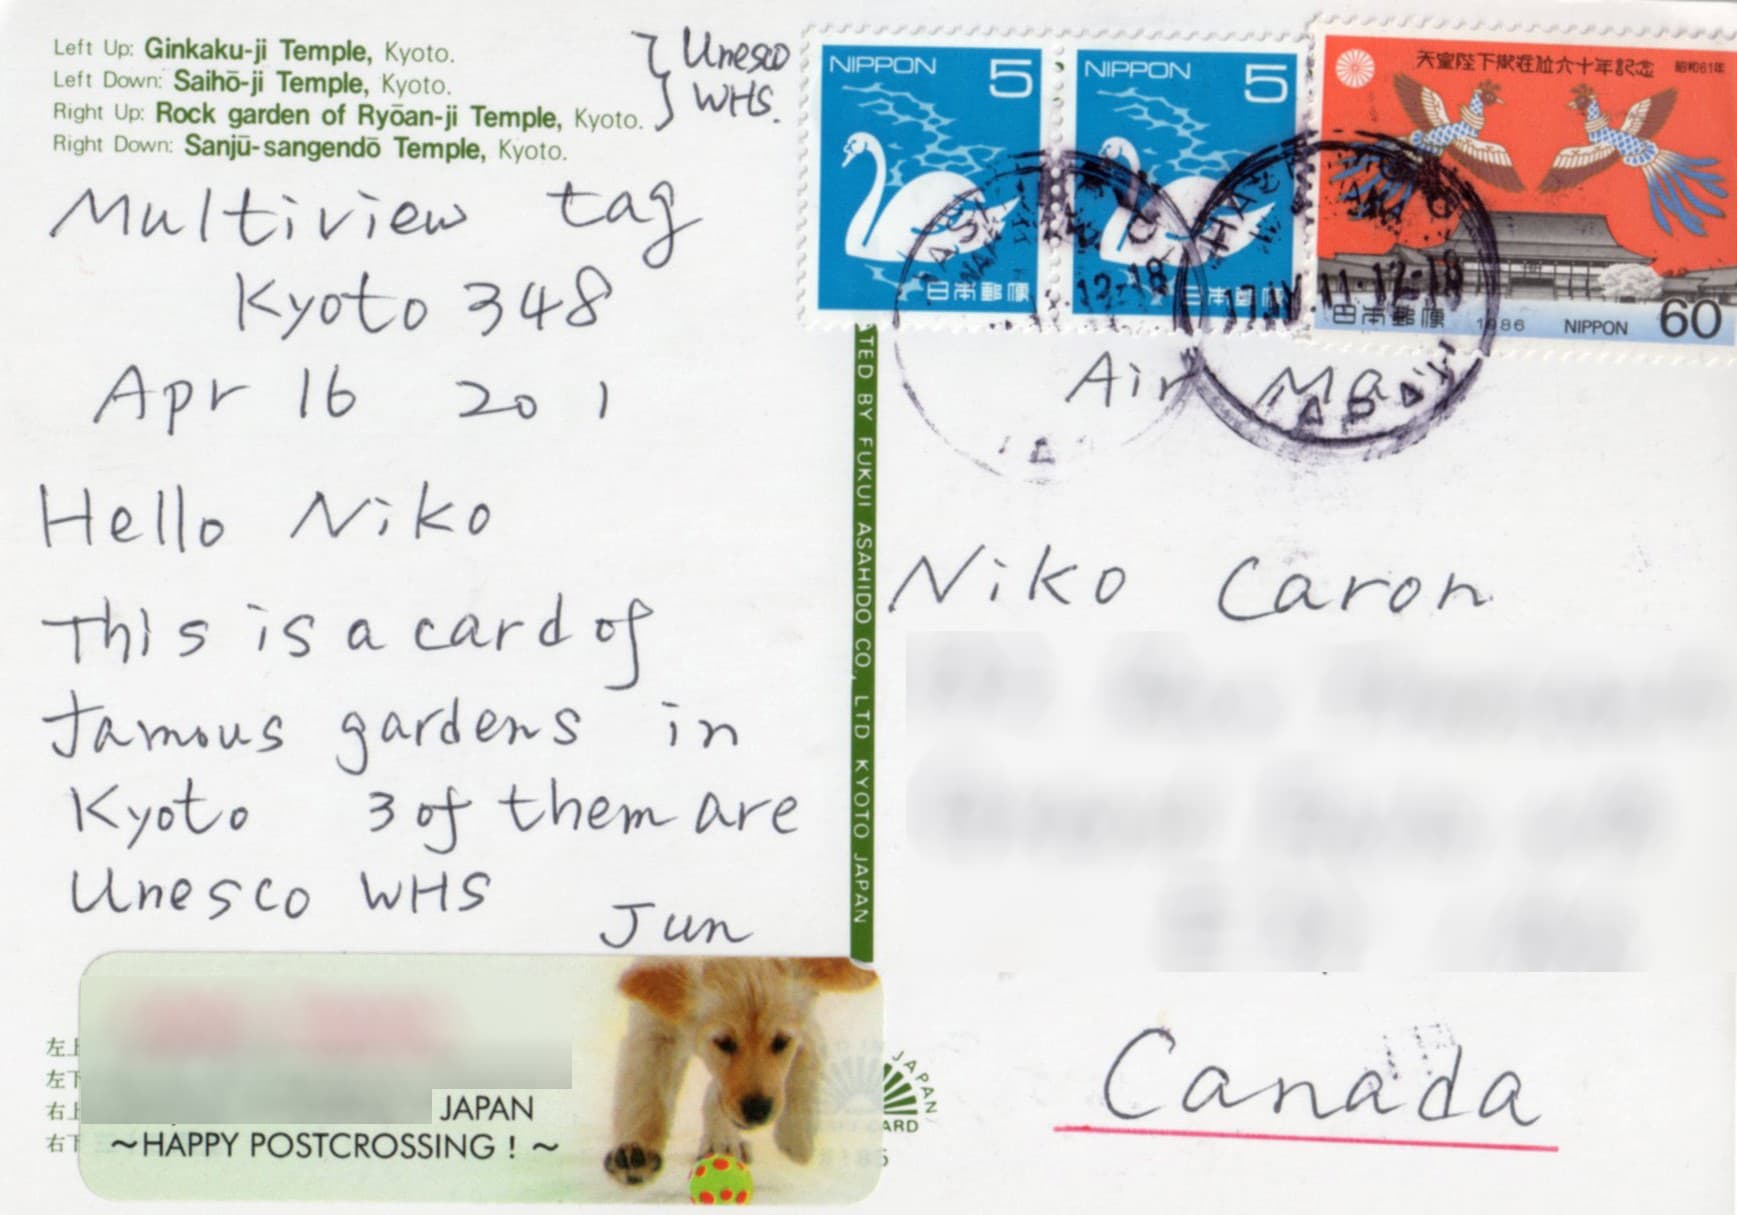 Left Up: Ginkaku-ji Temple, Kyoto.
Left Down: Saihō-ji Temple, Kyoto.
Right Up: Rock garden of Ryōan-ji Temple, Kyoto.
Right Down: Sanjū-sangendō Temple, Kyoto.
Unesco
WHS.
Multiview tag
Kyoto 348
Apr 16 201
Hello Niko
This is a card of
famous gardens in
Kyoto 3 of them are
Unesco WHS
Jun
左上
左下
右上
右下
JAPAN
~HAPPY POSTCROSSING ! ~
TED BY FUKUI ASAHIDO CO., LTD KYOTO JAPAN
JAPAN
ARD
NIPPON 5
日本郵便
NIPPON 5
日本郵便
天皇陛下御在位六十年記念 昭和61年
日本郵便 1986 NIPPON 60
.12-18
17.IV.11.12-18
JAPAN
Air Ma
Niko Caron
Canada